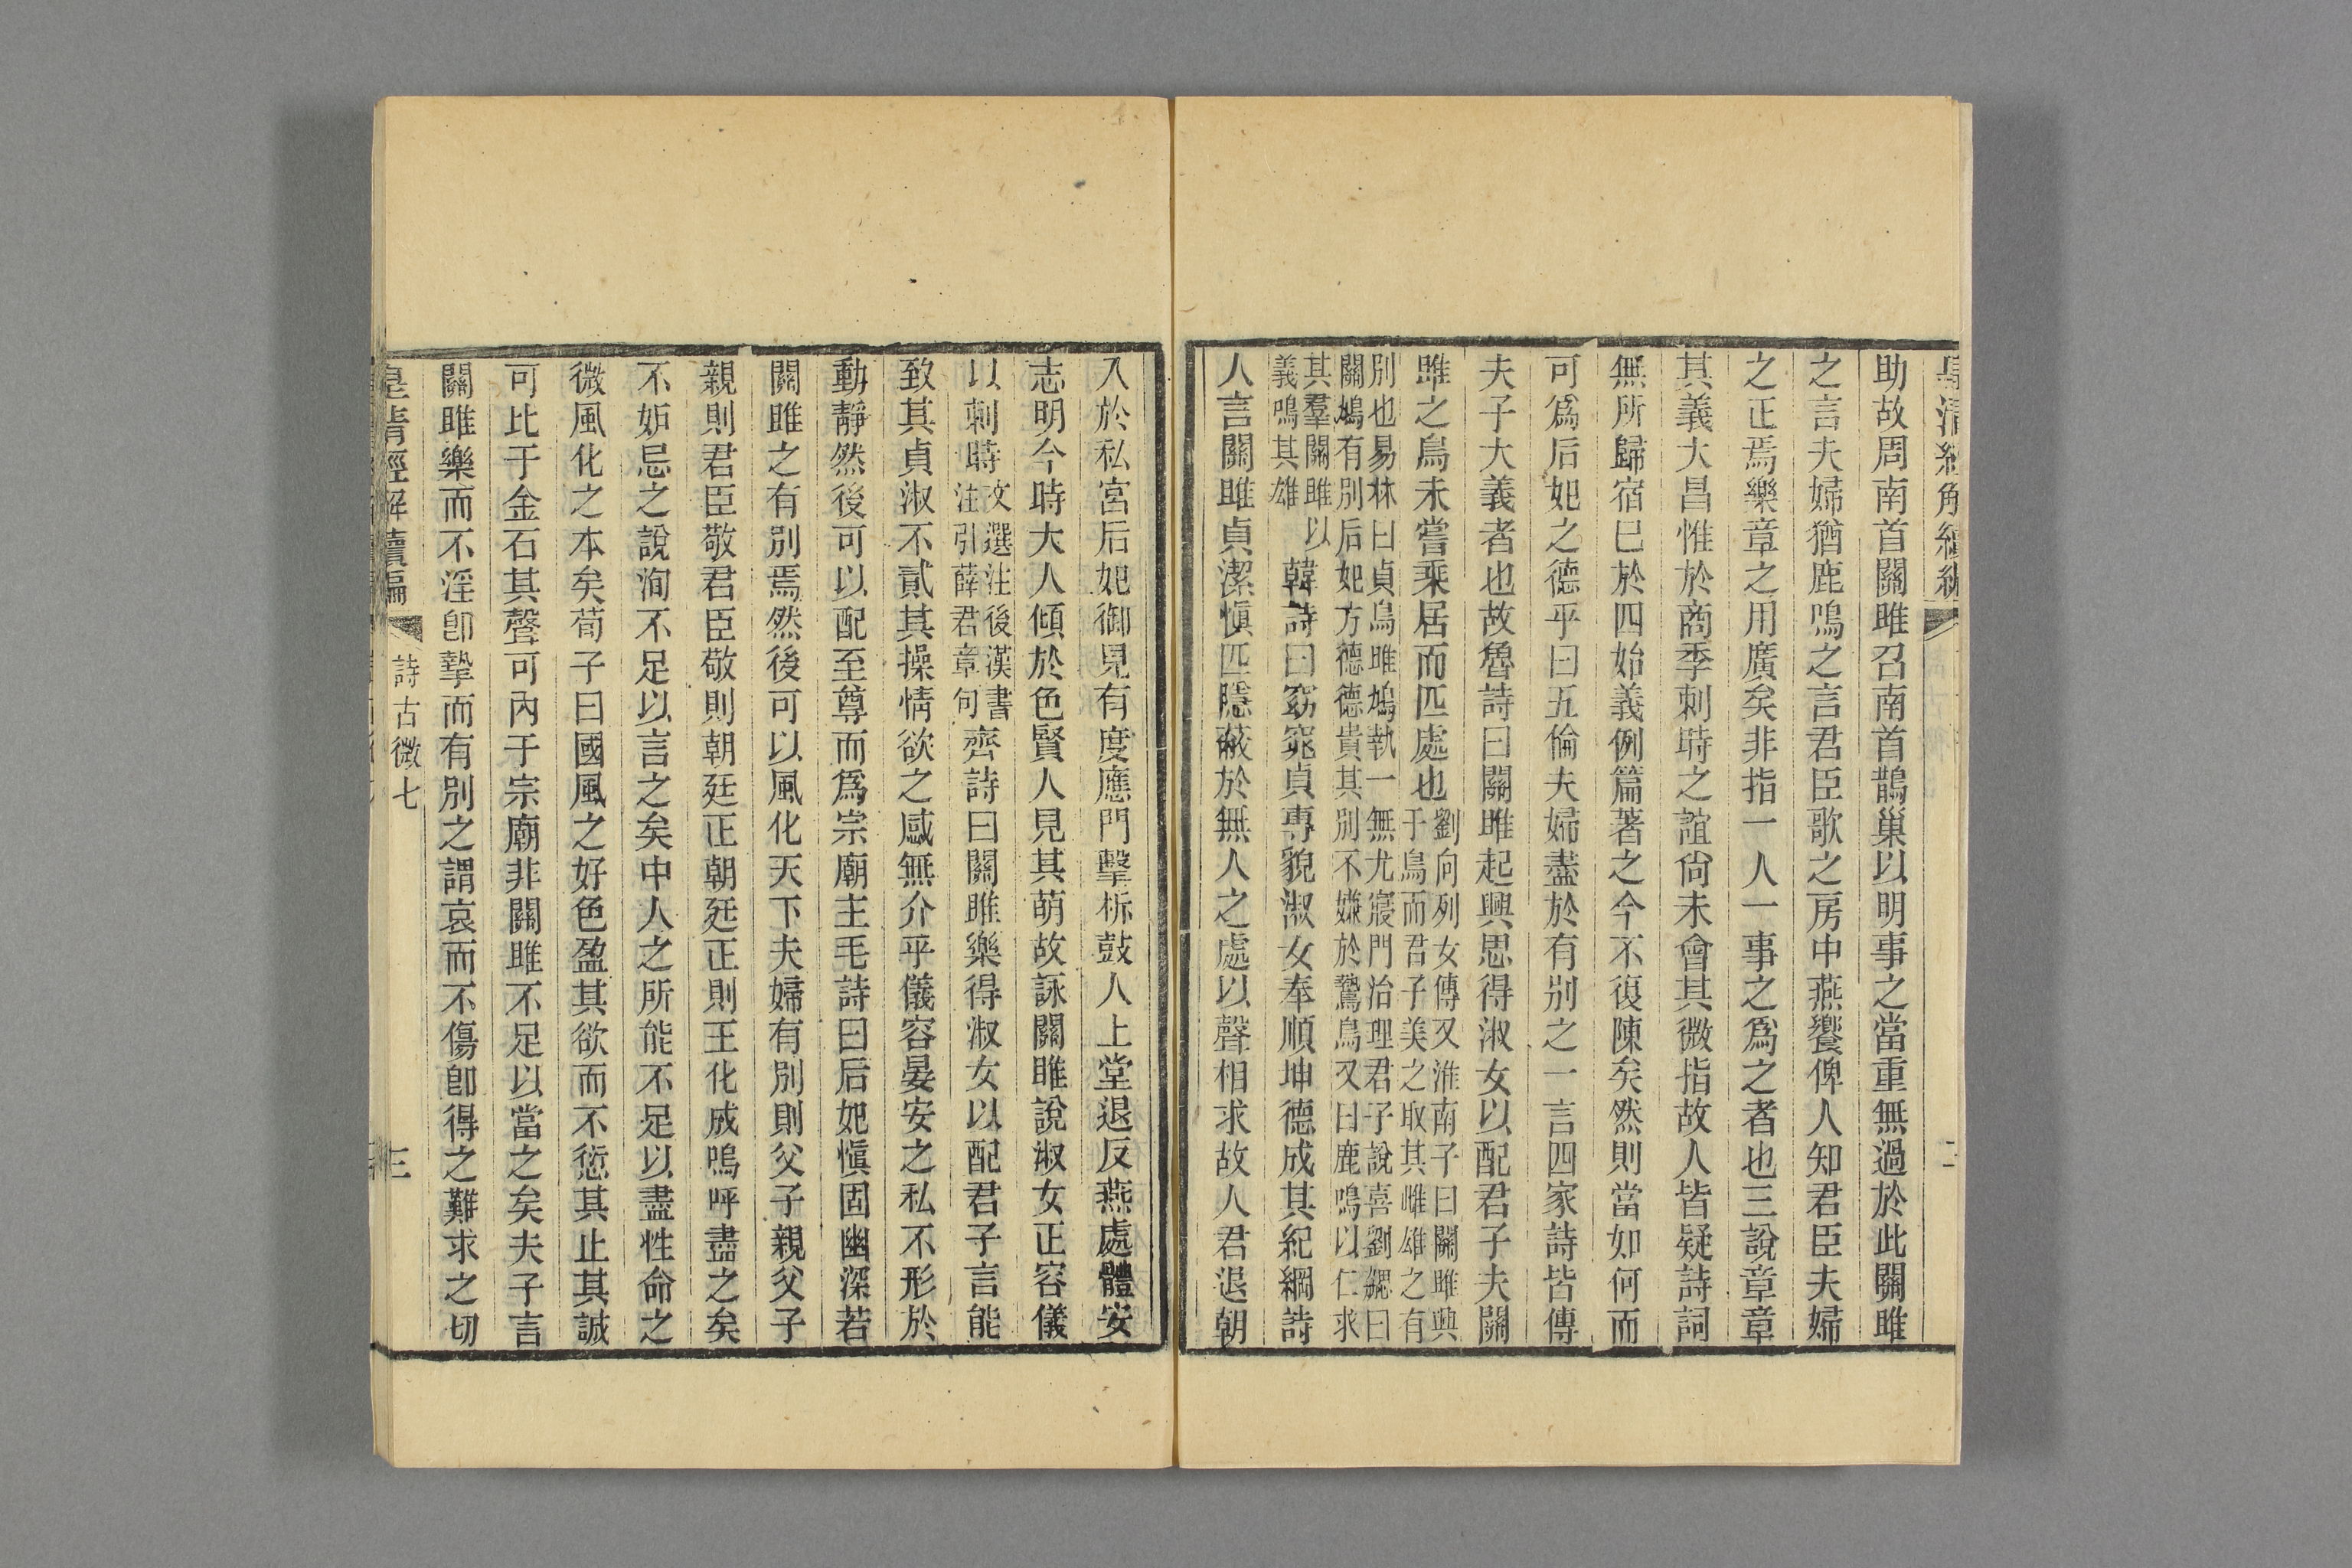 皇清經解續編
二
助故周南首關雎召南首鵲巢以明事之當重無過於此關雎
之言夫婦猶鹿鳴之言君臣歌之房中燕饗俾人知君臣夫婦
之正焉樂章之用廣矣非指一人一事之爲之者也三說章章
其義大昌惟於商季刺時之誼尙未會其微指故人皆疑詩詞
無所歸宿巳於四始義例篇著之今不復陳矣然則當如何而
可爲后妃之德乎曰五倫夫婦盡於有別之一言四家詩皆傳
夫子大義者也故魯詩曰關雎起興思得淑女以配君子夫關
雎之鳥未嘗乘居而匹處也
劉向列女傳又淮南子曰關雎興
于鳥而君子美之取其雌雄之有
別也易林曰貞鳥雎鳩執一無尤寢門治理君子說喜劉勰曰
關鳩有別后妃方德德貴其別不嫌於鷙鳥又曰鹿鳴以仁求
其羣關雎以
義鳴其雄
韓詩曰窈窕貞專貌淑女奉順坤德成其紀綱詩
人言關雎貞潔愼匹隱蔽於無人之處以聲相求故人君退朝
入於私宮后妃御見有度應門擊柝鼓人上堂退反燕處體安
志明今時大人傾於色賢人見其萌故詠關雎說淑女正容儀
以刺時
文選注後漢書
注引薛君章句
齊詩曰關雎樂得淑女以配君子言能
致其貞淑不貳其操情欲之感無介乎儀容晏安之私不形於
動靜然後可以配至尊而爲宗廟主毛詩曰后妃愼固幽深若
關雎之有別焉然後可以風化天下夫婦有別則父子親父子
親則君臣敬君臣敬則朝廷正朝廷正則王化成嗚呼盡之矣
不妒忌之說洵不足以言之矣中人之所能不足以盡性命之
微風化之本矣荀子曰國風之好色盈其欲而不愆其止其誠
可比于金石其聲可內于宗廟非關雎不足以當之矣夫子言
關雎樂而不淫卽摯而有別之謂哀而不傷卽得之難求之切
皇清經解續編
詩古微七
三